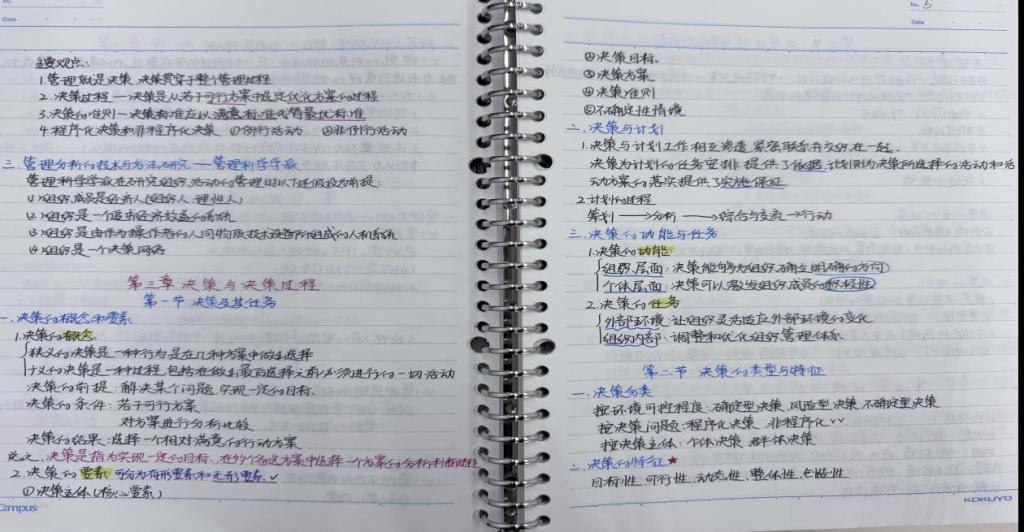 No.
Date
主要观点:
1.管理就是决策,决策贯穿于整个管理过程
2.决策过程——决策是从若干可行方案中选定优化方案的过程
3.决策的准则——决策标准应以满意标准代替最优标准
4.程序化决策和非程序化决策 ①例行活动 ②非例行活动
三.管理分析的技术与方法研究——管理科学学派
管理科学学派在研究组织活动的管理时以下述假设为前提:
(1)组织成员是经济人(组织人、理性人)
(2)组织是一个追求经济效益的系统
(3)组织是由作为操作者的人同物质技术设备所组成的人机系统
(4)组织是一个决策网络
第三章 决策与决策过程
第一节 决策及其任务
一、决策的概念和要素
1.决策的概念
狭义的决策是一种行为,是在几种方案中做出选择
广义的决策是一种过程,包括在做出最后选择之前必须进行的一切活动
决策的前提:解决某个问题,实现一定的目标
决策的条件:若干可行方案
对方案进行分析比较
决策的结果:选择一个相对满意的行动方案
定义:决策是指为实现一定的目标,在多个备选方案中选择一个方案的分析判断过程
2.决策的要素 可分为有形要素和无形要素 ✓
①决策主体(核心要素)
Campus
No. 5
Date
②决策目标
③决策方案
④决策准则
⑤不确定性情境
二.决策与计划
1.决策与计划工作相互渗透,紧密联系并交织在一起.
决策为计划的任务安排提供了依据,计划则为决策所选择的活动和活
动方案的落实提供了实施保证
2.计划的过程
筹划→分析→综合与交流→行动
三.决策的功能与任务
1.决策的功能
组织层面:决策能够为组织确立明确的方向
个体层面:决策可以激发组织成员的积极性
2.决策的任务
外部环境:让组织灵活适应外部环境的变化
组织内部:调整和优化组织管理体系
第二节 决策的类型与特征
一.决策分类
按环境可控程度:确定型决策、风险型决策、不确定型决策
按决策问题:程序化决策、非程序化✓✓
按决策主体:个体决策、群体决策
二.决策的特征★
目标性、可行性、动态性、整体性、创造性
KOKUYO